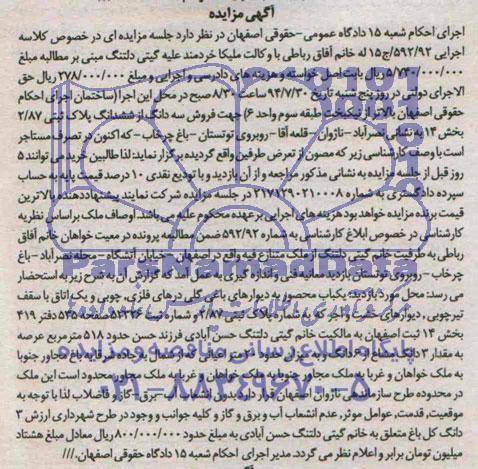 آگهی مزایده
اجرای احکام شعبه ۱۵ دادگاه عمومی -حقوقی اصفهان در نظر دارد جلسه مزایده ای در خصوص کلاسه
اجرایی ۵۹۲/۹۲/ج۱۵ له خانم آفاق رباطی با وکالت ملیکا خردمند علیه گیتی دلتنگ مبنی بر مطالبه مبلغ
۵/۷۳۰/۰۰۰/۰۰۰ ریال بابت اصل خواسته و هزینه های دادرسی و اجرایی و مبلغ ۲۷۸/۰۰۰/۰۰۰ ریال حق
الاجرای دولتی در روز پنج شنبه تاریخ ۹۴/۷/۳۰ ساعت ۸/۳۰ صبح در محل این اجرا (ساختمان اجرای احکام
حقوقی اصفهان بالاتر از نیکبخت طبقه سوم واحد ۶) جهت فروش سه دانگ از ششدانگ پلاک ثبتی ۲/۸۷
بخش ۱۴ به نشانی نصرآباد - ناژوان - قلعه آقا - روبروی توتستان - باغ چرخاب - که اکنون در تصرف مستاجر
است با وصف کارشناسی زیر که مصون از تعرض طرفین واقع گردیده برگزار نماید: لذا طالبین خرید می توانند ۵
روز قبل از جلسه مزایده به نشانی مذکور مراجعه و از آن بازدید و با تودیع نقدی ۱۰ درصد قیمت پایه به حساب
سپرده دادگستری به شماره ۲۱۷۱۲۹۰۲۱۰۰۰۸ در جلسه مزایده شرکت نمایند. پیشنهاددهنده بالاترین
قیمت برنده مزایده خواهد بود هزینه های اجرایی بر عهده محکوم علیه می باشد اوصاف ملک بر اساس نظریه
کارشناسی در خصوص ابلاغ کارشناسی به شماره ۵۹۲/۹۲ ضمن مطالعه پرونده در معیت خواهان خانم آفاق
رباطی به طرفیت خانم گیتی دلتنگ از ملک متنازع فیه واقع در اصفهان - خیابان آتشگاه - محله نصرآباد - باغ
چرخاب - روبروی توتستان بازدید و معاینه فنی و اندازه گیری به عمل آمد که گزارش آن به شرح زیر به استحضار
می رسد: محل مورد بازدید: یکباب محصور به دیوارهای باغی گلی درهای فلزی، چوبی و یک اتاق با سقف
تیرچوبی، دیوارهای خشت و آجر که به شماره پلاک ثبتی ۲/۸۷ و شماره ثبت صفحه ۵۳۵ دفتر ۴۱۹
بخش ۱۴ ثبت اصفهان به مالکیت خانم گیتی دلتنگ حسن آبادی فرزند حسن حدود ۵۱۸ مترمربع عرصه
به مقدار ۳ دانگ مشاع از ۶ دانگ و به میزان حدود
به ملک خواهان و غربا به ملک مجاور محدود است این ملک
در محدوده طرح ساماندهی ناژوان اصفهان قرار دارد بدون انشعاب آب - برق - گاز و فاضلاب لذا با توجه به
موقعیت، قدمت، عوامل موثر، عدم انشعاب آب و برق و گاز و کلیه جوانب و وجود در طرح شهرداری ارزش ۳
دانگ کل باغ متعلق به خانم گیتی دلتنگ حسن آبادی به مبلغ حدود ۸۰۰/۰۰۰/۰۰۰ ریال معادل مبلغ هشتاد
میلیون تومان برابر و اعلام نظر می گردد. مدیر اجرای احکام شعبه ۱۵ دادگاه حقوقی اصفهان. ///
پایگاه اطلاع رسانی مناقصه و مزایده
۰۲۱-۸۸۳۴۹۶۷۰-۵